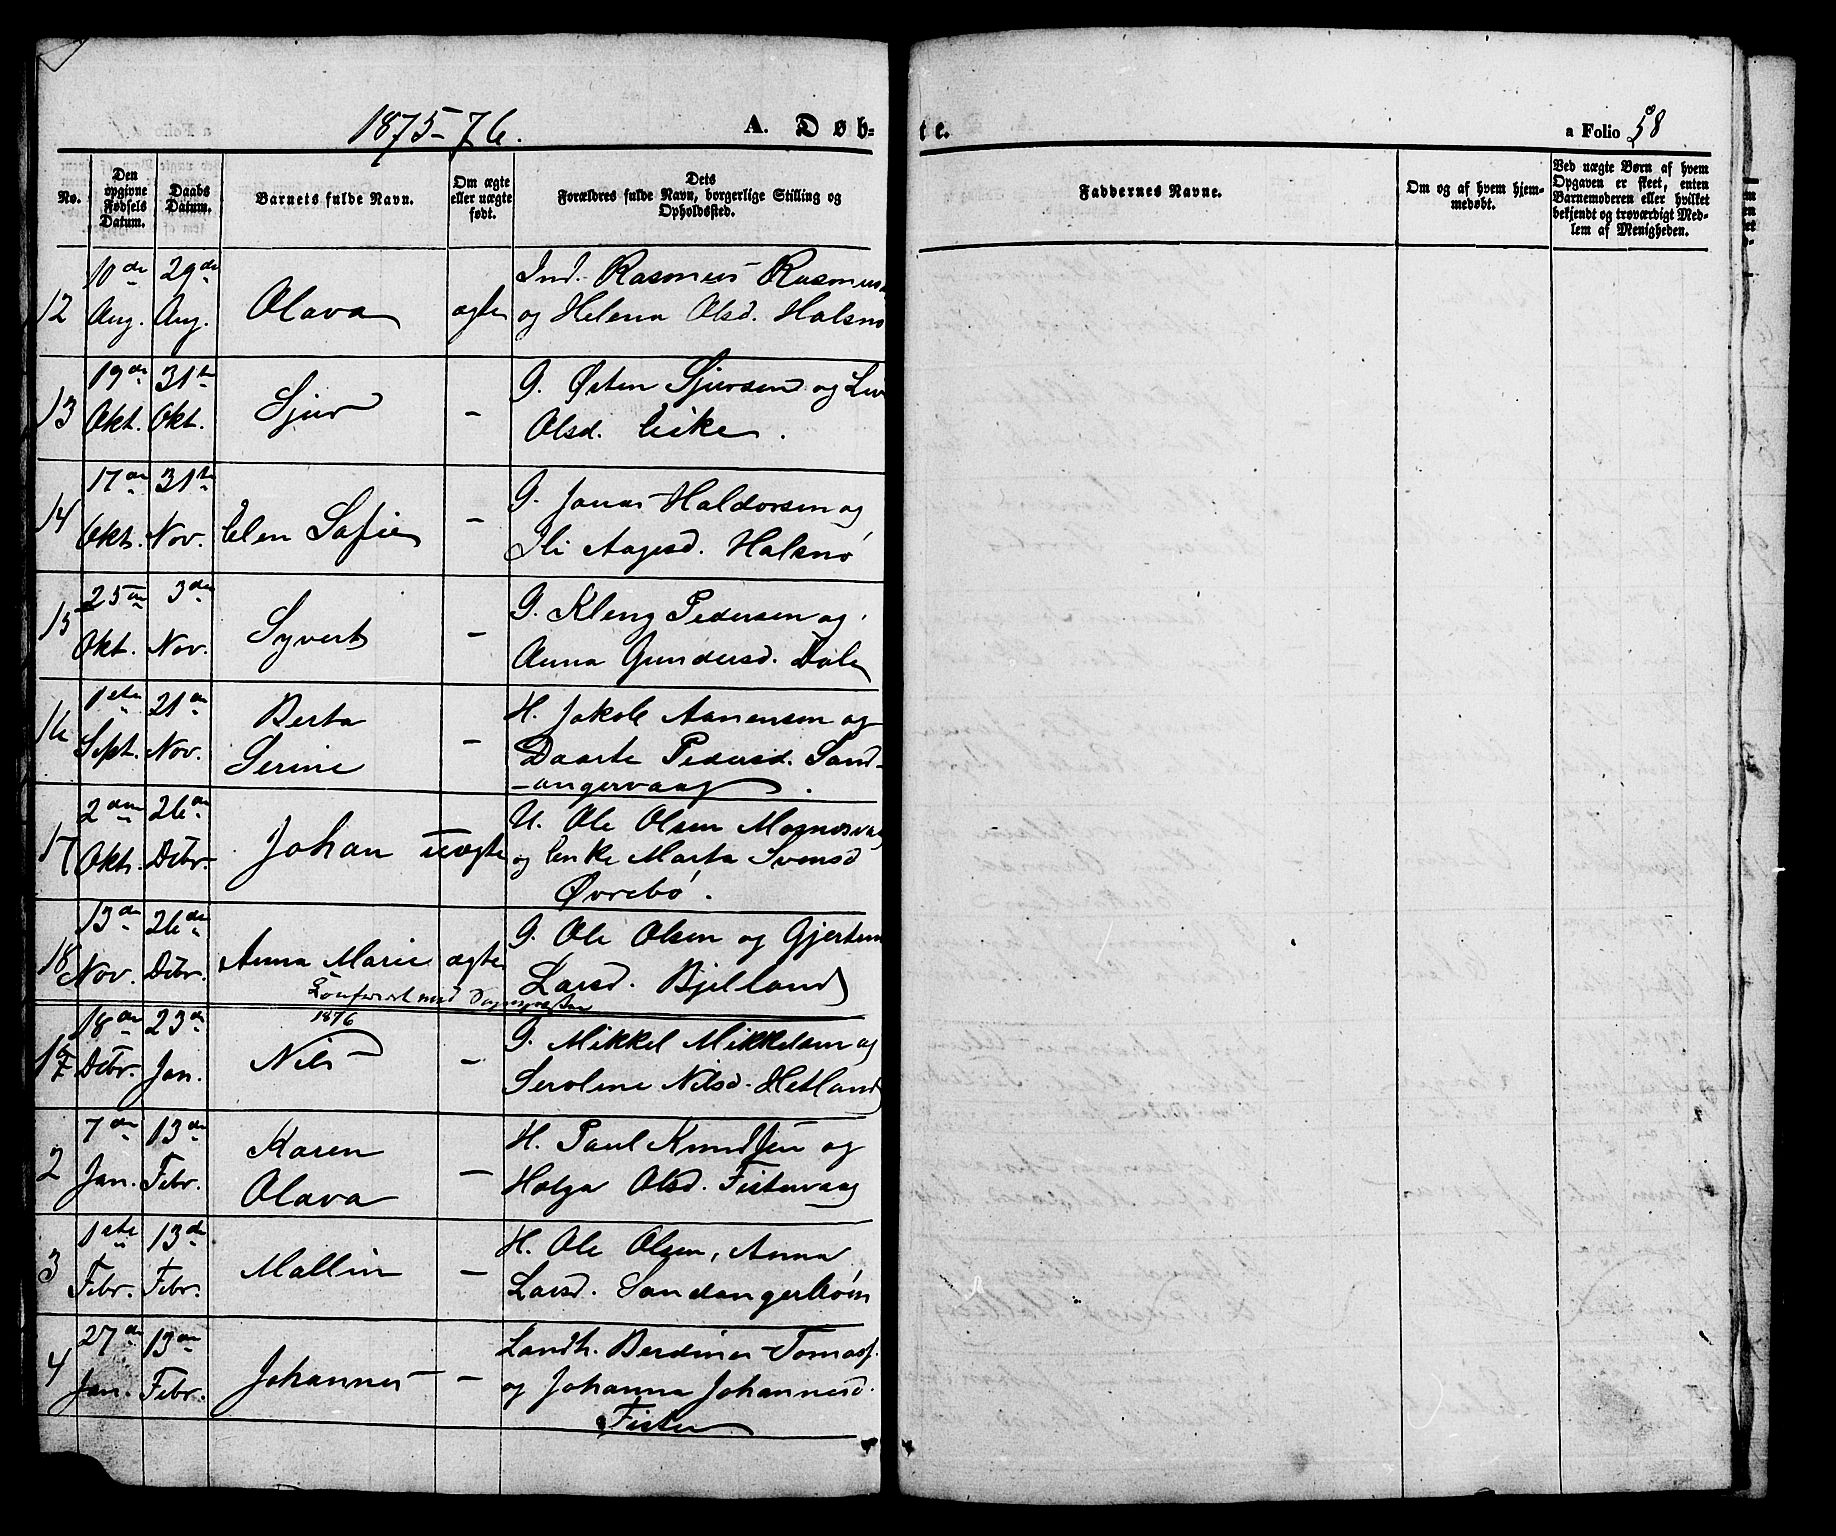 1875-76.
A. Døb-
te.
a Folio 58
No.
Den opgivne Fødsels Datum.
Daabs Datum.
Barnets fulde Navn.
Om ægte eller uægte født.
Dets Forældres fulde Navn, borgerlige Stilling og Opholdssted.
Faddernes Navne.
Om og af hvem hjemmedøbt.
Ved uægte Børn af hvem Opgaven er skeet, enten Barnemoderen eller hvilket bekjendt og troværdigt Medlem af Menigheden.
12 10de Aug. 29de Aug. Olava ægte Ind. Rasmus Rasmus
og Helena Olsd. Halsnø
13 19de Okt. 31te Okt. Sjur - G. Østen Sjursen og Liv
Olsd. Eike.
14 17de Okt. 31te Nov. Elen Sofie - G. Jonas Haldorsen og
Ili Aagesd. Halsnø
15 25de Okt. 3de Nov. Syvert - G. Kleng Pedersen og
Anna Gundersd. Dale
16 1ste Sept. 21de Nov. Berta Serine - H. Jakob Aanensen og
Daarte Pedersd. Sand-
-angervaag.
17 2den Okt. 26de Debr. Johan uægte U. Ole Olsen Mosnesvaag
og Enke Marta Svensd
Øvrebø.
18 13de Nov. 26de Debr. Anna Marie ægte G. Ole Olsen og Gjertine
Larsd. Bjelland
Konfereret med
1876
1 18de Debr. 23de Jan. Nils - G. Mikkel Mikkelsen og
Serolene Nilsd. Hetland
2 7de Jan. 13de Febr. Karen Olava - H. Paul Knudsen og
Helga Olsd. Fistervaag
3 1ste Febr. 13de Febr. Mallin - H. Ole Olsen, Anna
Larsd. Sandangerhøien
4 27de Jan. 13de Febr. Johannes - Landh. Berdines Tomasf.
og Johanna Johannesd.
Fister